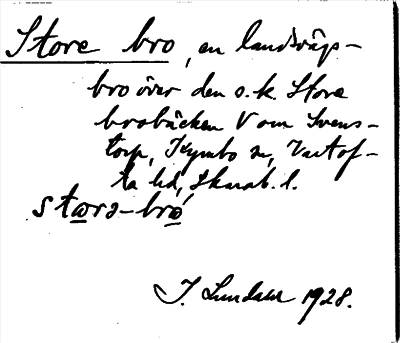 Store bro, en landsvägs-
bro över den s.k. Store
brobäcken V om Svens-
torp, Kymbo sn, Vartof-
ta hd, Skarab. l.
stɷrə-brɷ́
J. Lundahl 1928.